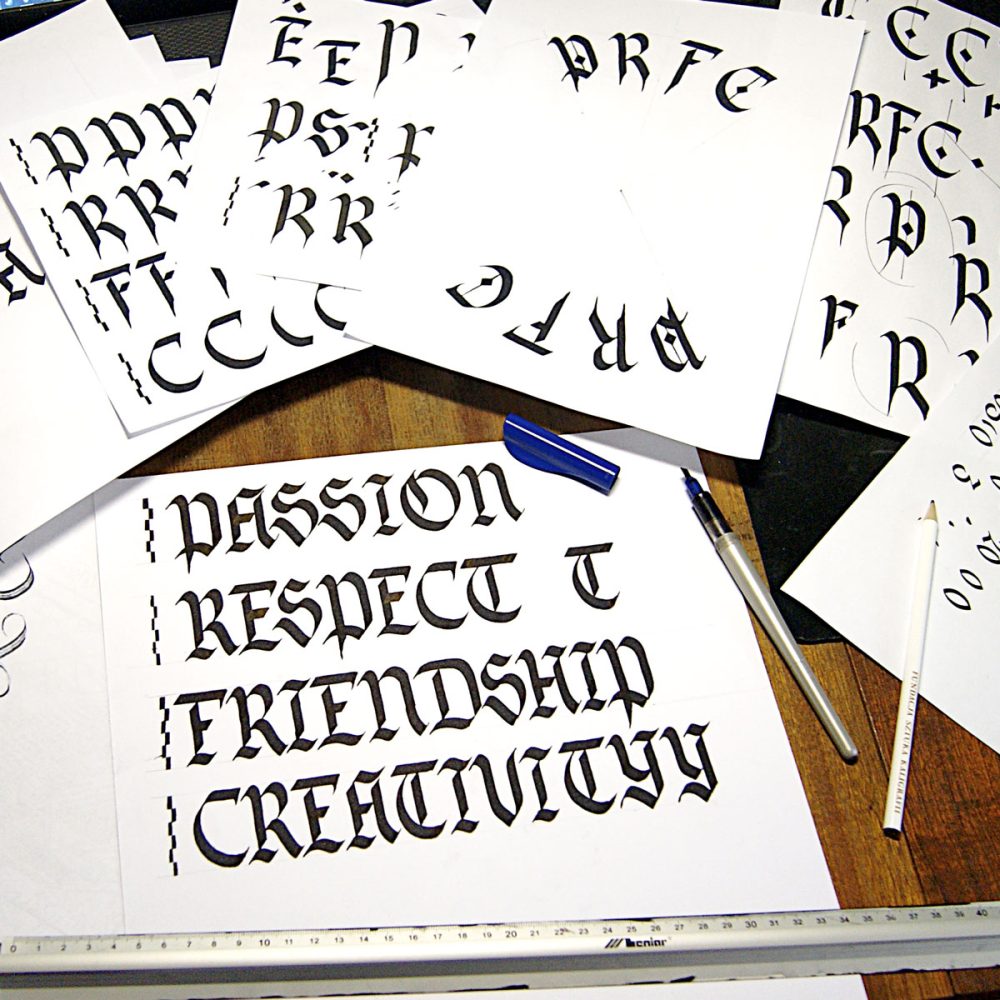 È E P
P R F C
C C
P P P
P S
R F C
R R
R R
P
F F
R
C C C C
F R
P R F C
PASSION
RESPECT T
FRIENDSHIP
CREATIVITYY
FUNDACJA SZTUKA KALIGRAFII
0 1 2 3 4 5 6 7 8 9 10 11 12 13 14 15 16 17 18 19 20 21 22 23 24 25 26 27 28 29 30 31 32 33 34 35 36 37 38 39 40
Leniar